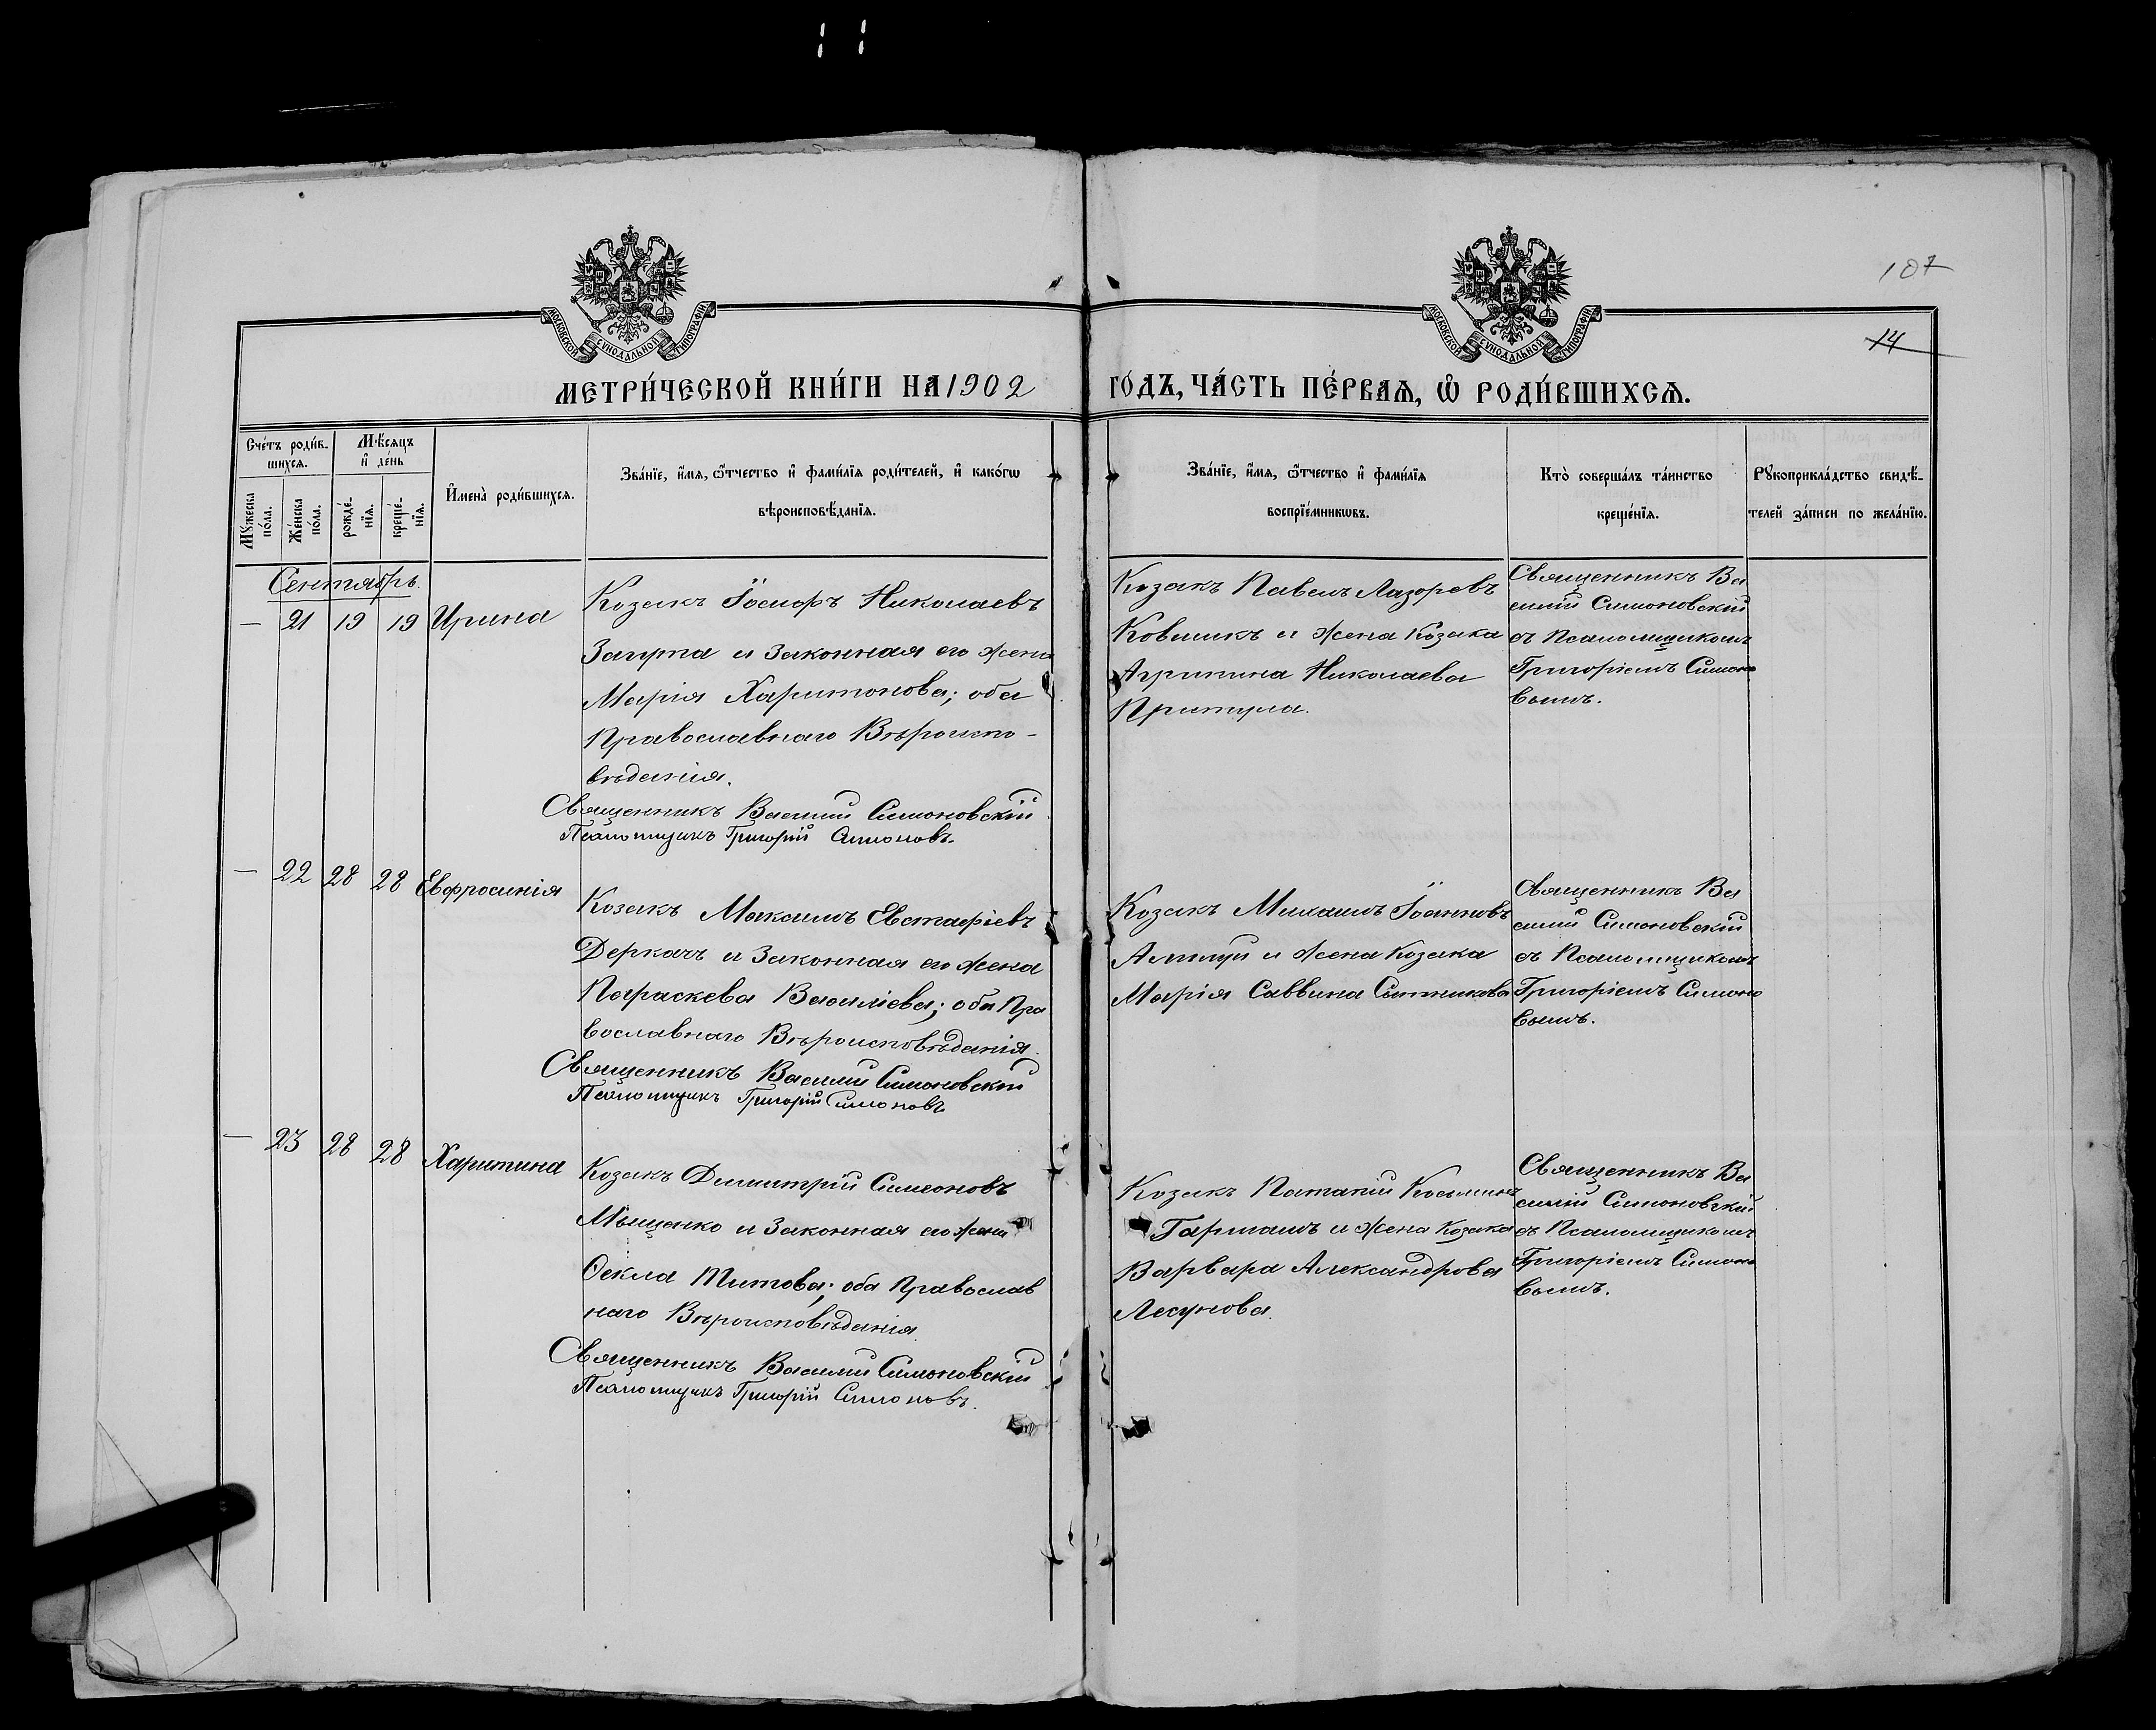 107
14
МОСКОВСКОЙ СУНОДАЛЬНОЙ ТИПОГРАФІИ
МОСКОВСКОЙ СУНОДАЛЬНОЙ ТИПОГРАФІИ
МЕТРИ́ЧЕСКОЙ КНИ́ГИ НА 1902 ГО́ДЪ, ЧА́СТЬ ПЕ́РВАѦ, Ѡ҆ РОДИ́ВШИХСѦ.
Сче́тъ роди́в-
шихсѧ.
Мѣ́сѧцъ
и҆ де́нь
Мꙋ́жеска
по́ла.
Же́нска
по́ла.
рожде́-
нїѧ.
креще́-
нїѧ.
И҆мена̀ роди́вшихсѧ.
Зва́нїе, и҆́мѧ, ѻ҆́тчество и҆ фами́лїѧ роди́телей, и҆ како́гѡ
вѣроисповѣ́данїѧ.
Зва́нїе, и҆́мѧ, ѻ҆́тчество и҆ фами́лїѧ
воспрїе́мникѡвъ.
Кто̀ соверша́лъ та́инство
креще́нїѧ.
Рꙋкоприкла́дство свидѣ́-
телей за́писи по жела́нїю.
Сентябрь.
— 21 19 19 Ирина
Козакъ Іосифъ Николаевъ
и Законная его жена
Марія Харитонова; оба
Православнаго Вѣроиспо-
вѣданія.
Священникъ Василій Симоновскій
Псаломщикъ Григорій Симоновъ.
Козакъ Павелъ Лазоревъ
Ковшикъ и жена Козака
Агрипина Николаева
Притула.
Священникъ Ва
силій Симоновскій
съ Псаломщикомъ
Григоріемъ Симоно
вымъ.
— 22 28 28 Евфросинія
Козакъ Максимъ Евстафіевъ
Деркачъ и Законная его жена
Параскева Василіева; оба Пра
вославнаго Вѣроисповѣданія.
Священникъ Василій Симоновскій
Псаломщикъ Григорій Симоновъ
Козакъ Михаилъ Іоанновъ
и жена Козака
Марія Саввина
Священникъ Ва
силій Симоновскій
съ Псаломщикомъ
Григоріемъ Симоно
вымъ.
— 23 28 28 Харитина
Козакъ Димитрій Симеоновъ
Мищенко и Законная его жена
Ѳекла Титова; оба Православ
наго Вѣроисповѣданія.
Священникъ Василій Симоновскій
Псаломщикъ Григорій Симоновъ.
Козакъ Потапій Косьминъ
Гармашъ и жена Козака
Варвара Александрова
Лесунова.
Священникъ Ва
силій Симоновскій
съ Псаломщикомъ
Григоріемъ Симоно
вымъ.